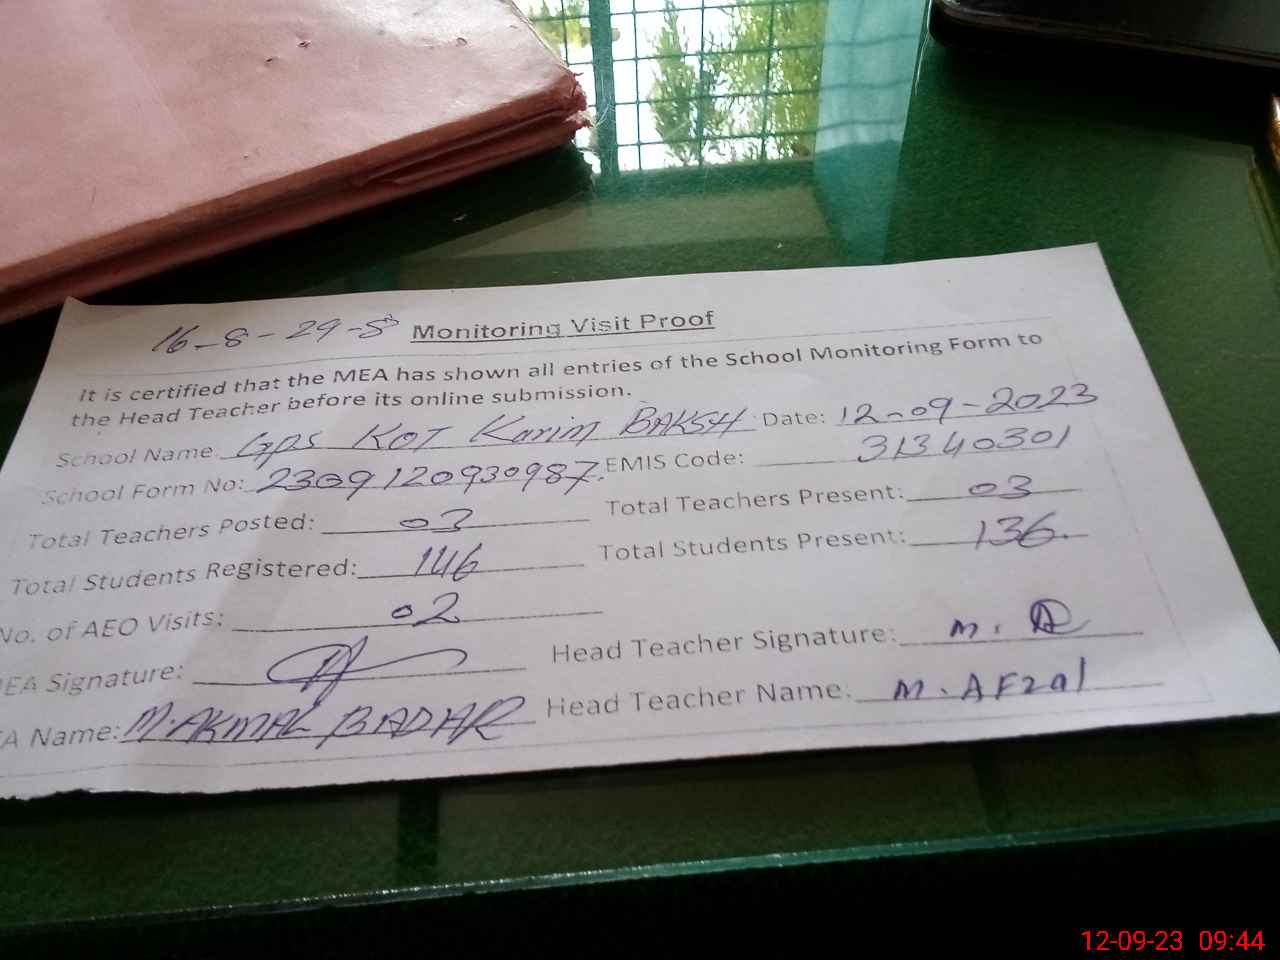 16-8-29-8 Monitoring Visit Proof
It is certified that the MEA has shown all entries of the School Monitoring Form to
the Head Teacher before its online submission.
School Name GPS KOT Karim BAKSH Date: 12-09-2023
School Form No: 2309120930987. EMIS Code: 31340301
Total Teachers Posted: 03 Total Teachers Present: 03
Total Students Registered: 146 Total Students Present: 136.
No. of AEO Visits: 02
EA Signature: Head Teacher Signature: M.
A Name: M. AKMAL BADAR Head Teacher Name: M. AFzal
12-09-23 09:44